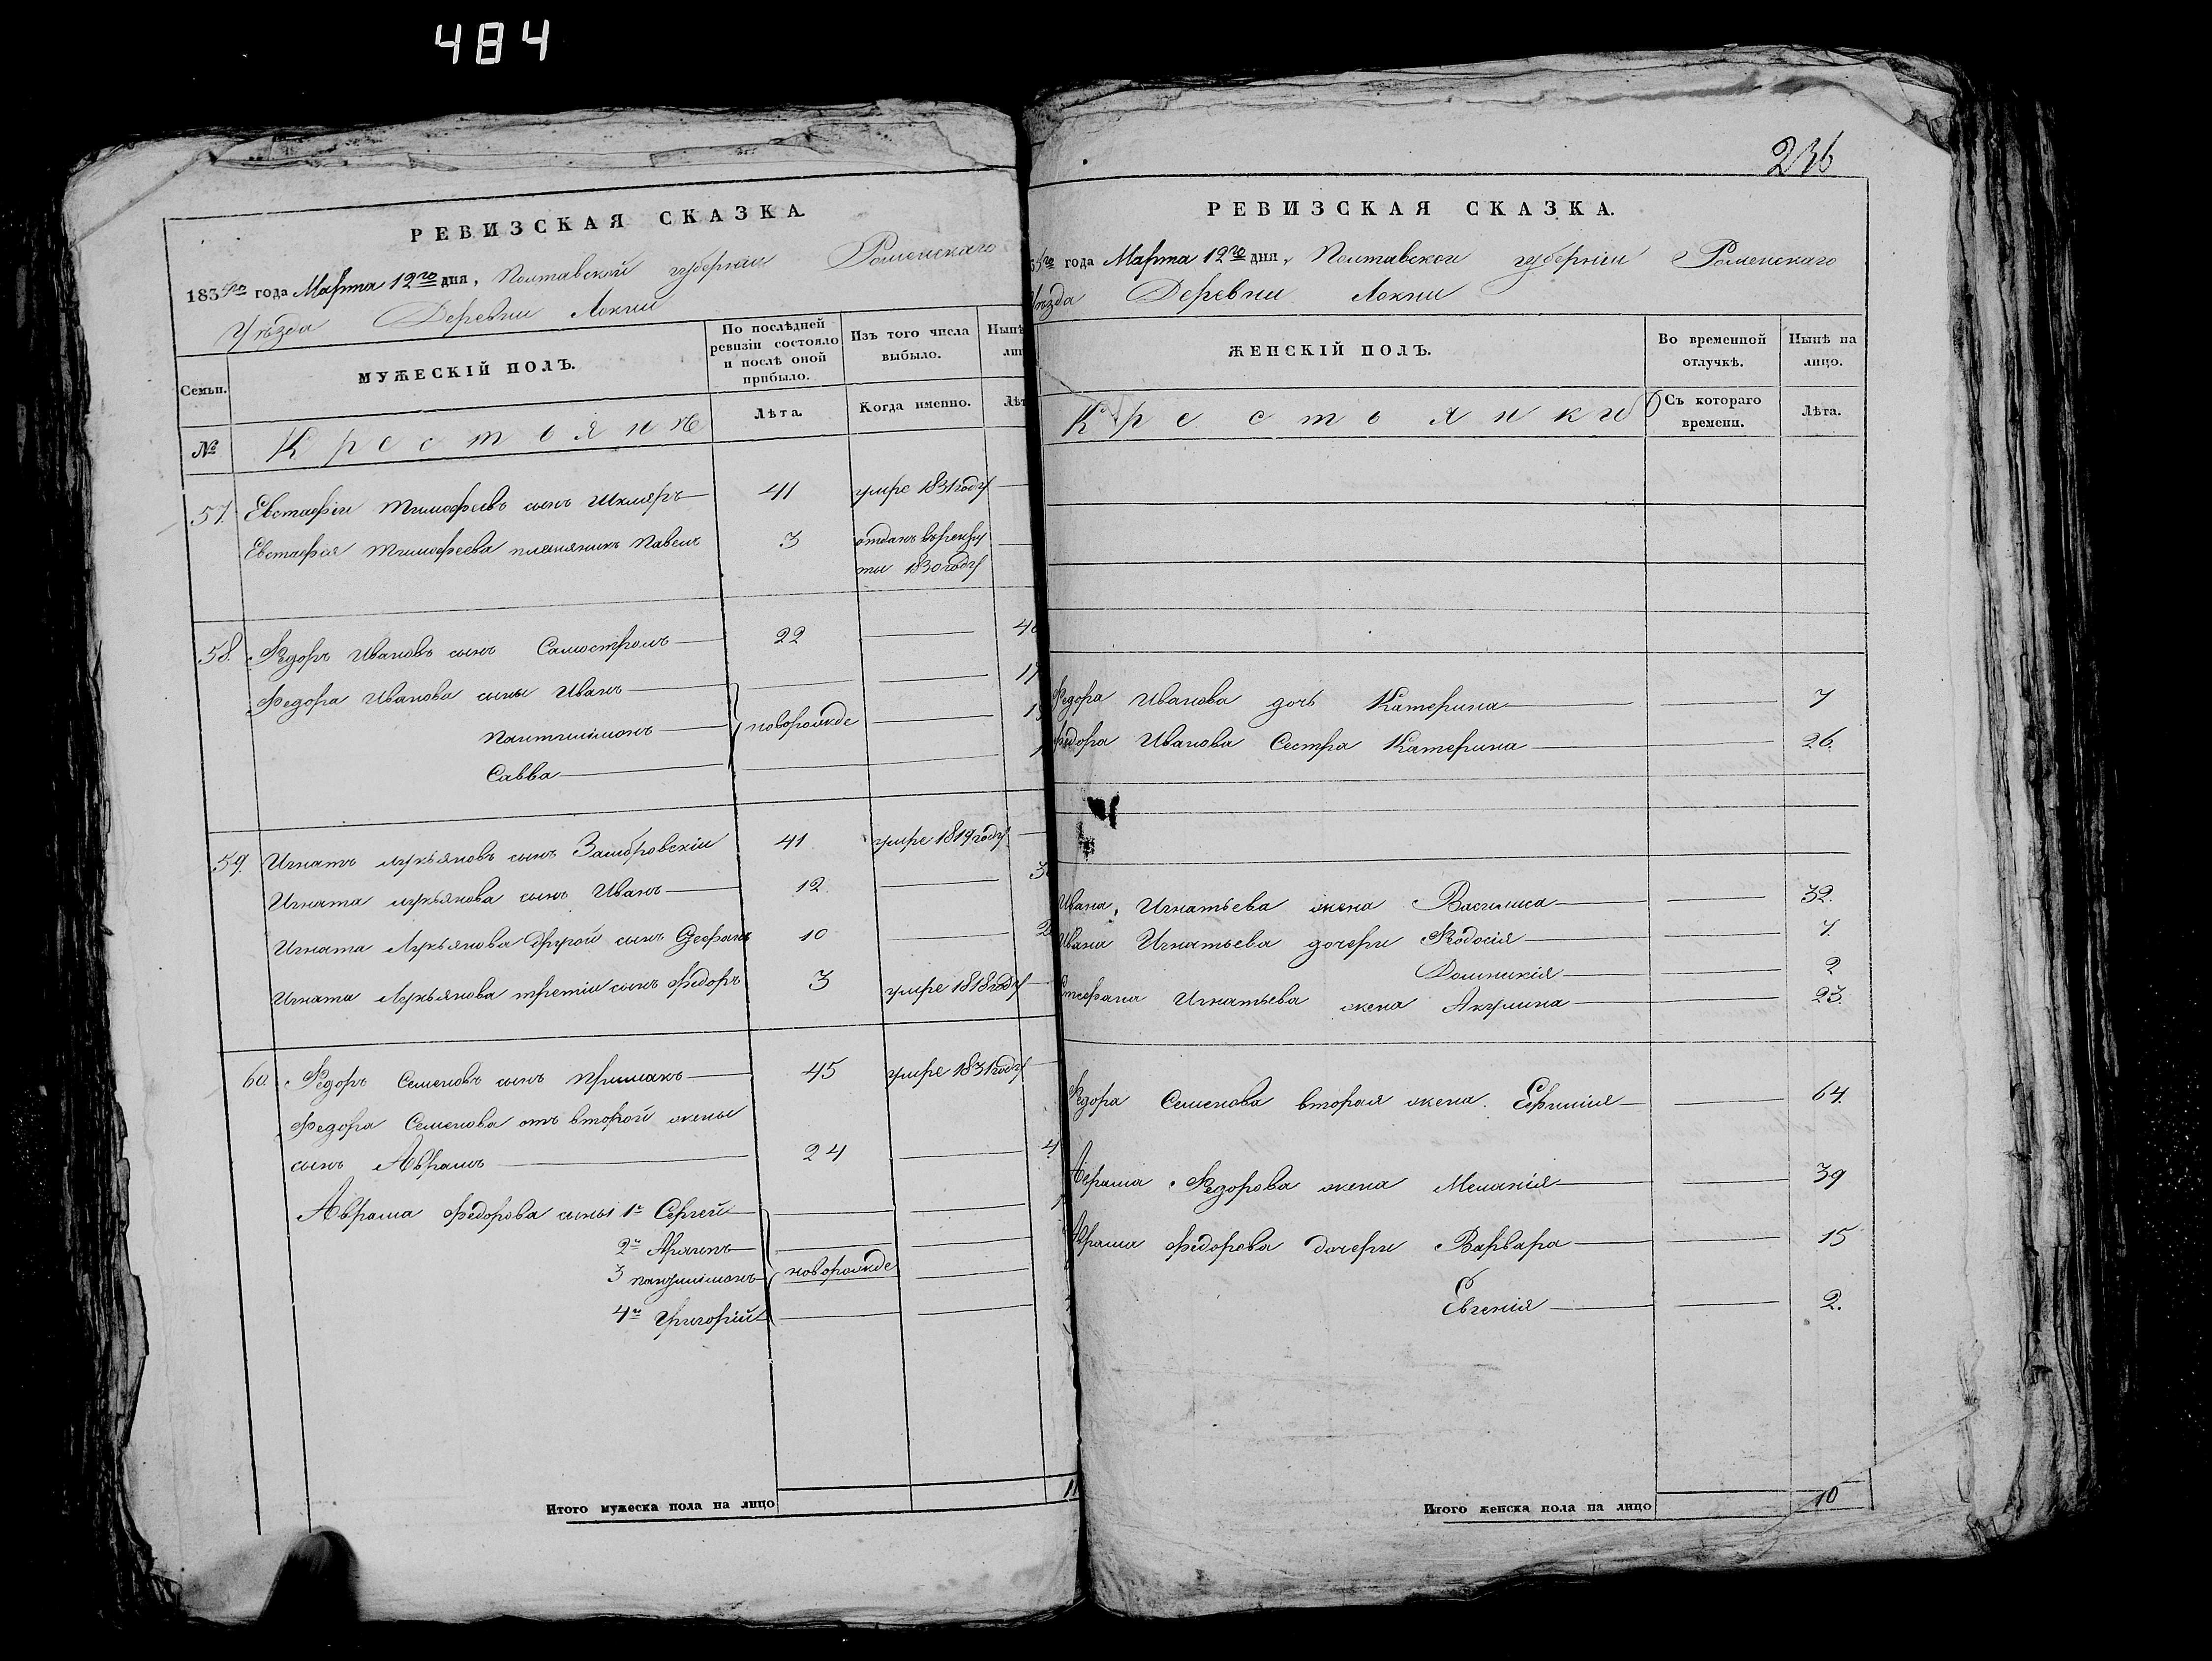 484
РЕВИЗСКАЯ СКАЗКА.
1835го года Марта 12го дня, Полтавской губернии Роменскаго
Уѣзда Деревни Локни
Семьи.
МУЖЕСКІЙ ПОЛЪ.
По послѣдней ревизіи состояло и послѣ оной прибыло.
Изъ того числа выбыло.
Нынѣ
№
Крестьянѣ
Лѣта.
Когда именно.
57. Евстафіи Тимофеевъ сынъ Шкляръ 41 умре 1831 году
Евстафія Тимофеева племяникъ Павелъ 3 отданъ врекру
ты 1830 году
58. Федоръ Ивановъ сынъ 22
Федора Иванова сыны Иванъ
Пантилимонъ новорожде
Савва
59. Игнатъ лукьяновъ сынъ 41 умре 1819 году
Игната лукьянова сынъ Иванъ 12
Игната Лукьянова другой сынъ 10
Игната Лукьянова третіи сынъ Федоръ 3 умре 1818 году
60 Федоръ Семеновъ сынъ Примакъ 45 умре 1831 году
Федора Семенова отъ второй жены
сынъ Аврамъ 24
Аврама Федорова сыны 1й Сергей
2й
3 новорожде
4й Григорій
Итого мужеска пола на лицо 11
236
РЕВИЗСКАЯ СКАЗКА.
5го года Марта 12го дня, Полтавской губерніи Роменскаго
Уѣзда Деревни Локни
ЖЕНСКІЙ ПОЛЪ.
Во временной отлучкѣ.
Нынѣ на лицо.
Крестьянки
Съ котораго времени.
Лѣта.
Федора Иванова дочь Катерина 7
Федора Иванова Сестра Катерина 26.
Ивана Игнатьева жена Василиса 32.
Ивана Игнатьева дочери Федосія 7.
Домникія 2
Стефана Игнатьева жена Акулина 23.
Федора Семенова вторая жена Ефимія 64.
Аврама Федорова жена Меланія 39
Аврама Федорова дочери Варвара 15
Евгенія 2.
Итого женска пола на лицо 10